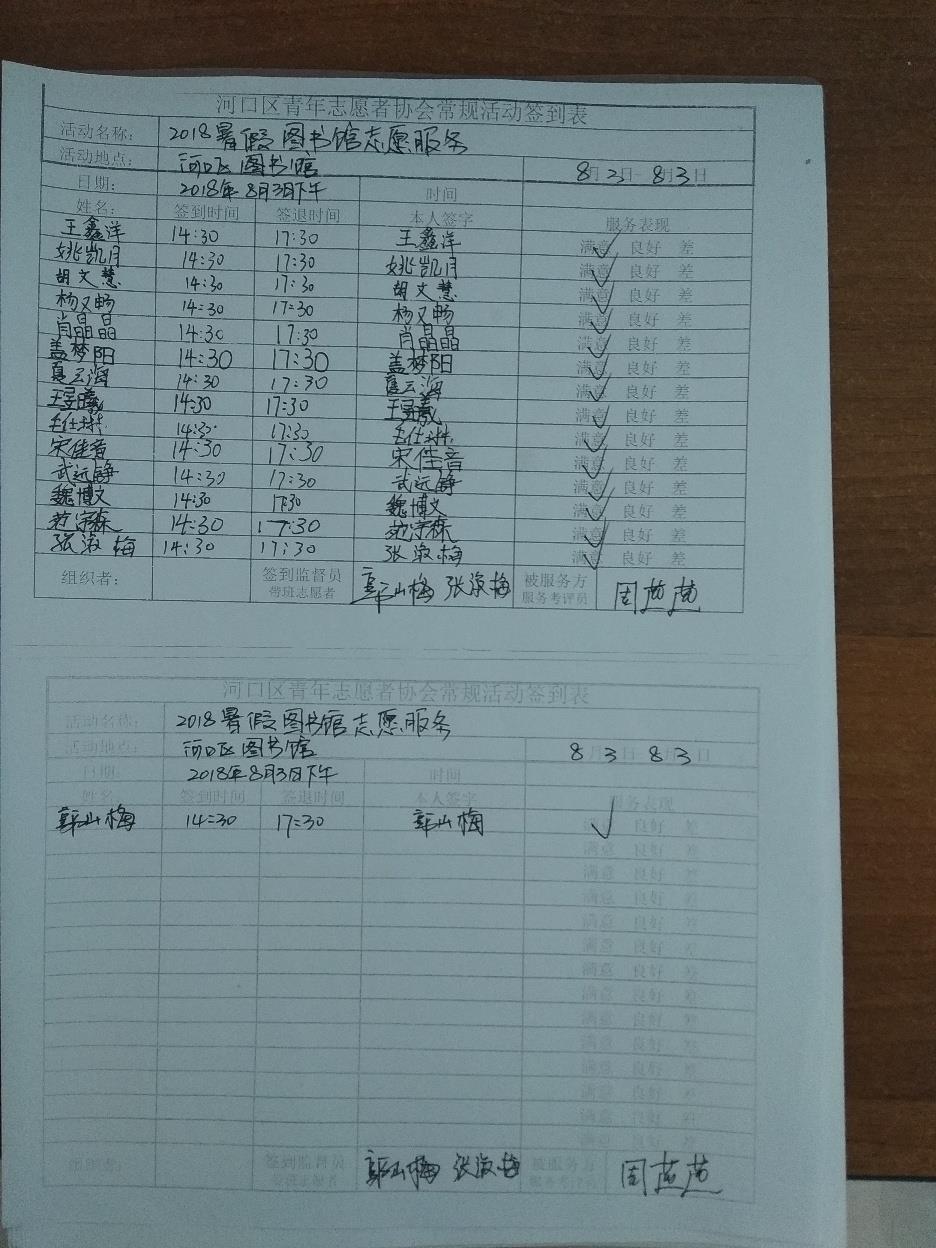 河口区青年志愿者协会常规活动签到表
活动名称： 2018暑假图书馆志愿服务
活动地点： 河口区图书馆 8月3日-8月3日
日期： 2018年8月3日下午 时间
姓名： 签到时间 签退时间 本人签字 服务表现
王鑫洋 14:30 17:30 王鑫洋 满意 良好 差
姚凯月 14:30 17:30 姚凯月 满意 良好 差
胡文慧 14:30 17:30 胡文慧 满意 良好 差
杨又畅 14:30 17:30 杨又畅 满意 良好 差
肖晶晶 14:30 17:30 肖晶晶 满意 良好 差
盖梦阳 14:30 17:30 盖梦阳 满意 良好 差
云海 14:30 17:30 云海 满意 良好 差
王昱曦 14:30 17:30 王昱曦 满意 良好 差
14:30 17:30 满意 良好 差
宋佳音 14:30 17:30 宋佳音 满意 良好 差
武远静 14:30 17:30 武远静 满意 良好 差
魏博文 14:30 17:30 魏博文 满意 良好 差
范宇森 14:30 17:30 范宇森 满意 良好 差
张淑梅 14:30 17:30 张淑梅 满意 良好 差
组织者： 签到监督员 山梅 张淑梅 被服务方 周
带班志愿者 服务考评员
河口区青年志愿者协会常规活动签到表
活动名称： 2018暑假图书馆志愿服务
活动地点： 河口区图书馆 8月3日-8月3日
日期： 2018年8月3日下午 时间
姓名： 签到时间 签退时间 本人签字 服务表现
山梅 14:30 17:30 山梅 满意 良好 差
满意 良好 差
满意 良好 差
满意 良好 差
满意 良好 差
满意 良好 差
满意 良好 差
满意 良好 差
满意 良好 差
满意 良好 差
满意 良好 差
满意 良好 差
满意 良好 差
满意 良好 差
组织者： 签到监督员 山梅 张淑梅 被服务方 周
带班志愿者 服务考评员